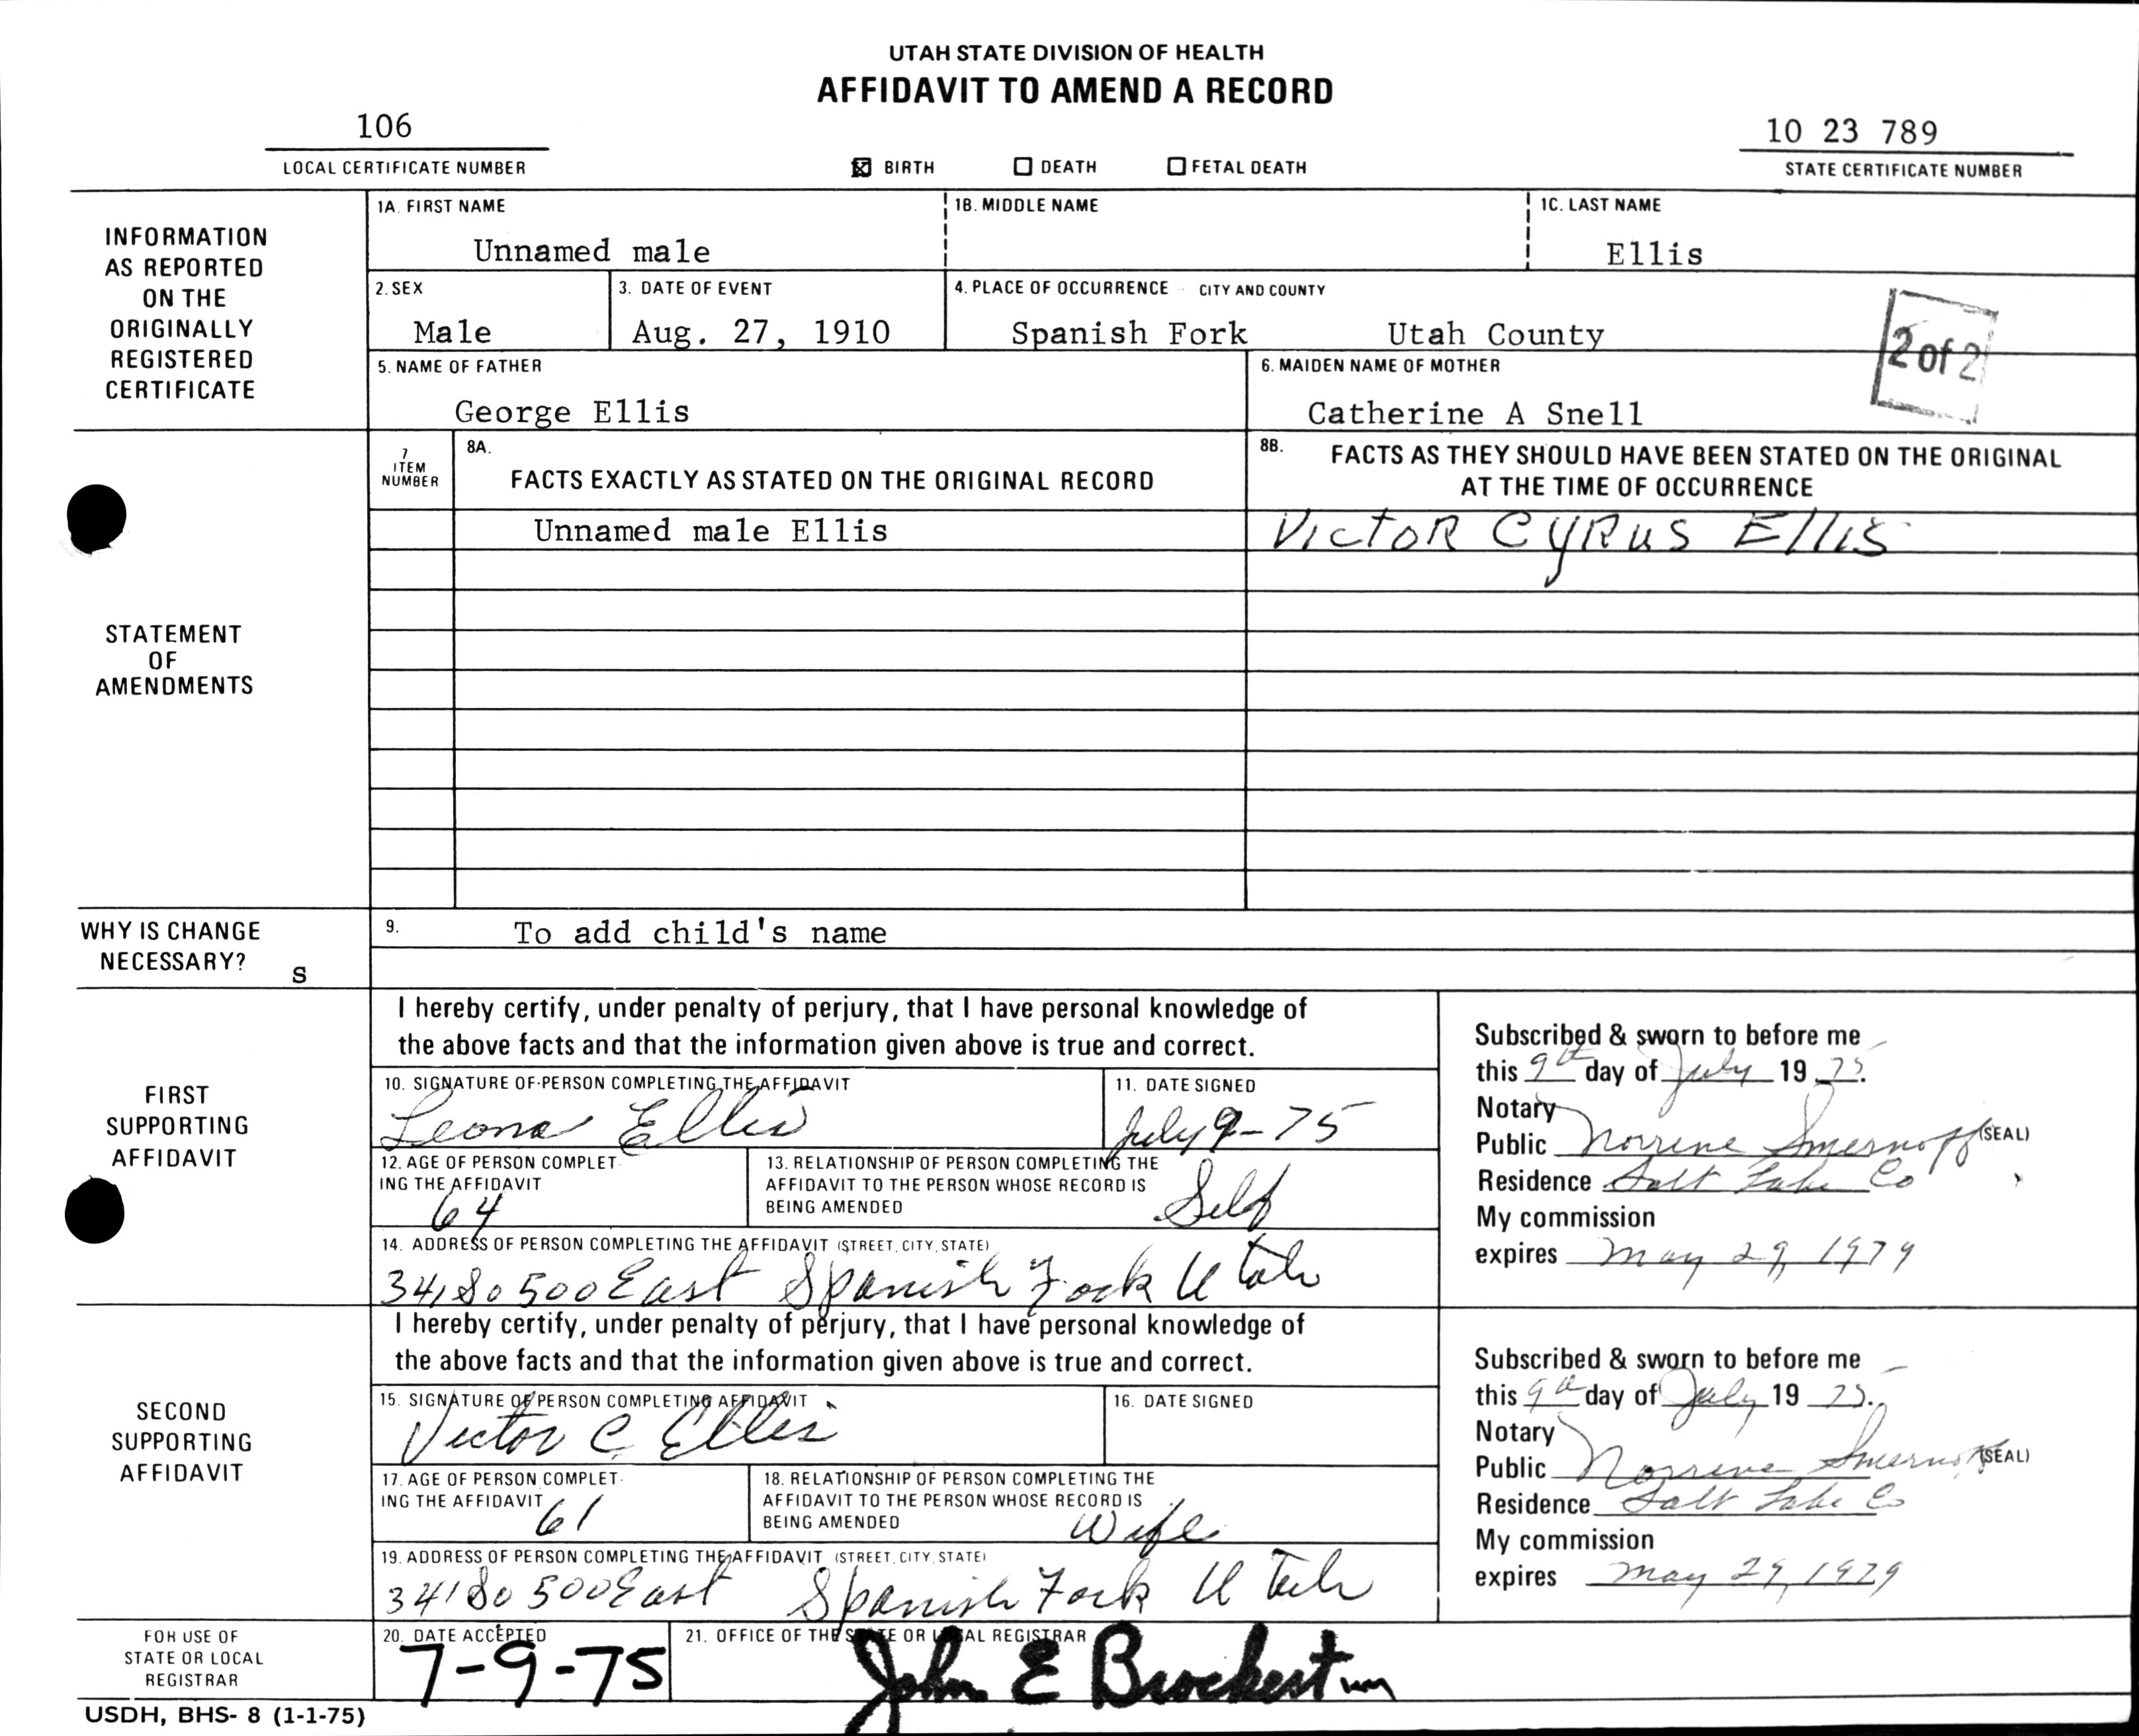 UTAH STATE DIVISION OF HEALTH
AFFIDAVIT TO AMEND A RECORD
106
10 23 789
LOCAL CERTIFICATE NUMBER
☒ BIRTH ☐ DEATH ☐ FETAL DEATH
STATE CERTIFICATE NUMBER
INFORMATION
AS REPORTED
ON THE
ORIGINALLY
REGISTERED
CERTIFICATE
1A. FIRST NAME
Unnamed male
1B. MIDDLE NAME
1C. LAST NAME
Ellis
2. SEX
Male
3. DATE OF EVENT
Aug. 27, 1910
4. PLACE OF OCCURRENCE - CITY AND COUNTY
Spanish Fork Utah County
2 of 2
5. NAME OF FATHER
George Ellis
6. MAIDEN NAME OF MOTHER
Catherine A Snell
STATEMENT
OF
AMENDMENTS
7
ITEM
NUMBER
8A.
FACTS EXACTLY AS STATED ON THE ORIGINAL RECORD
8B. FACTS AS THEY SHOULD HAVE BEEN STATED ON THE ORIGINAL
AT THE TIME OF OCCURRENCE
Unnamed male Ellis
VICTOR CYRUS Ellis
WHY IS CHANGE
NECESSARY?
S
9. To add child's name
FIRST
SUPPORTING
AFFIDAVIT
I hereby certify, under penalty of perjury, that I have personal knowledge of
the above facts and that the information given above is true and correct.
10. SIGNATURE OF PERSON COMPLETING THE AFFIDAVIT
Leona Ellis
11. DATE SIGNED
July 9-75
12. AGE OF PERSON COMPLET-
ING THE AFFIDAVIT
64
13. RELATIONSHIP OF PERSON COMPLETING THE
AFFIDAVIT TO THE PERSON WHOSE RECORD IS
BEING AMENDED
Self
14. ADDRESS OF PERSON COMPLETING THE AFFIDAVIT (STREET, CITY, STATE)
341 So 500 East Spanish Fork Utah
Subscribed & sworn to before me
this 9th day of July 19 75.
Notary
Public Norrene Smernoff (SEAL)
Residence Salt Lake Co
My commission
expires May 29, 1979
SECOND
SUPPORTING
AFFIDAVIT
I hereby certify, under penalty of perjury, that I have personal knowledge of
the above facts and that the information given above is true and correct.
15. SIGNATURE OF PERSON COMPLETING AFFIDAVIT
Victor C. Ellis
16. DATE SIGNED
17. AGE OF PERSON COMPLET-
ING THE AFFIDAVIT
61
18. RELATIONSHIP OF PERSON COMPLETING THE
AFFIDAVIT TO THE PERSON WHOSE RECORD IS
BEING AMENDED
Wife
19. ADDRESS OF PERSON COMPLETING THE AFFIDAVIT (STREET, CITY, STATE)
341 So 500 East Spanish Fork Utah
Subscribed & sworn to before me
this 9th day of July 19 75.
Notary
Public Norrene Smernoff (SEAL)
Residence Salt Lake Co
My commission
expires May 29, 1979
FOR USE OF
STATE OR LOCAL
REGISTRAR
20. DATE ACCEPTED
7-9-75
21. OFFICE OF THE STATE OR LOCAL REGISTRAR
John E Brockert
USDH, BHS- 8 (1-1-75)